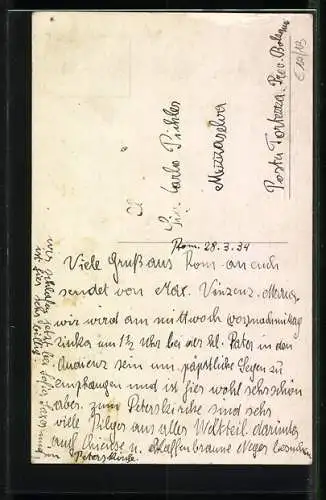 Sig. Carlo Pichler
Mezzaselva
Posta Fortezza. Prov. Bolzano
Rom. 28.3.34
Viele Gruß aus Rom an euch
sendet von Max. Vinzenz.
wir wird am mittwoch vormachmittag
zirka um 1½ Uhr bei der hl. Pater in den
Audienz sein um päpstliche Segen zu
empfangen und ist hier wohl sehr schön
aber. zum Peterskirche sind sehr
viele Pilger aus aller Weltteil. darunter
auch Chinese u. Kaffenbraune Neger
wir schlafen jetzt bei
ist hier sehr billig
Peterskirche.